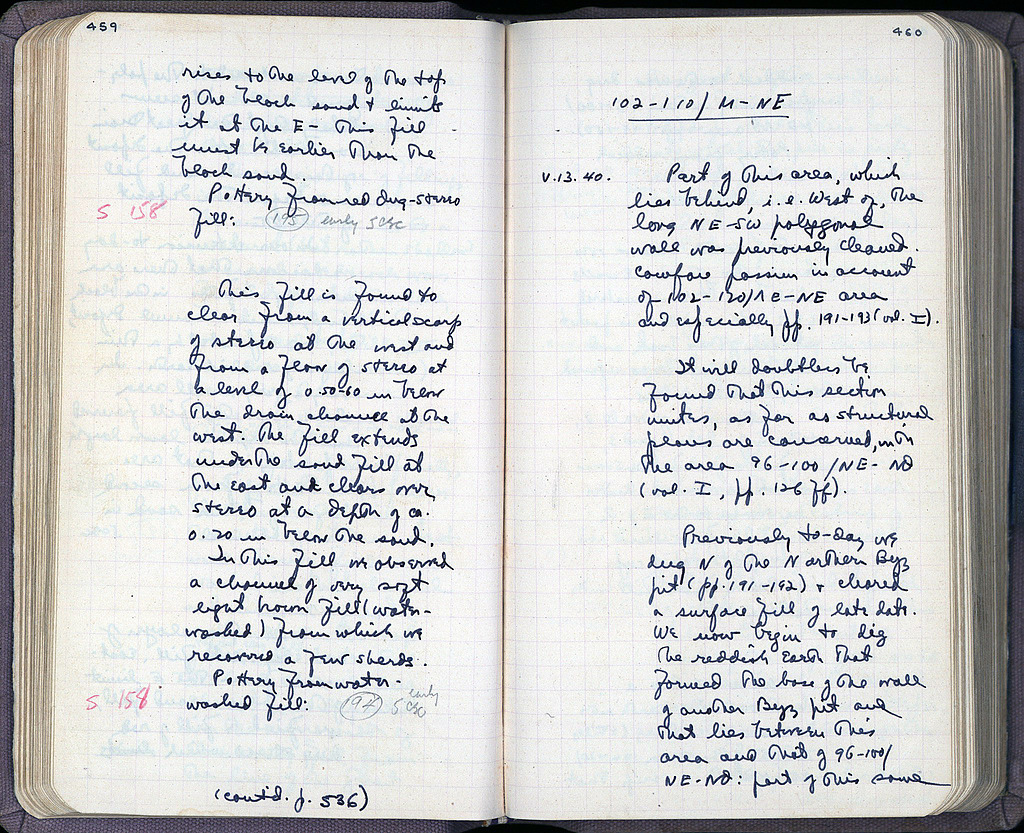 459
rises to the level of the top
of the black sand & limits
it at the E - This fill
must be earlier than the
black sand.
Pottery from red dug-stereo
S 158 fill: (195) early 5 C BC
This fill is found to
clear from a vertical scarp
of stereo at the west and
from a floor of stereo at
a level of 0.50-60 m below
the drain channel at the
west. The fill extends
under the sand fill at
the east and clears over
stereo at a depth of ca.
0.20 m below the sand.
In this fill we observed
a channel of very soft
light brown fill (water-
washed) from which we
recovered a few sherds.
Pottery from water-
S 158 washed fill: (197) early 5 C BC
(contd. p. 536)
460
102-110/M-NE
V.13.40. Part of this area, which
lies behind, i.e. West of, the
long NE-SW polygonal
wall was previously cleaned.
compare passim in account
of 102-120/ΛE-NE area
and especially pp. 191-193 (vol. I).
It will doubtless be
found that this section
unites, as far as structural
plans are concerned, with
the area 96-100/NE-NΘ
(vol. I, pp. 126 ff).
Previously to-day we
dug N of the Northern Byz
pit (pp. 191-192) & cleared
a surface fill of late date.
We now begin to dig
the reddish earth that
formed the base of the wall
of another Byz pit and
that lies between this
area and that of 96-100/
NE-NΘ: part of this same